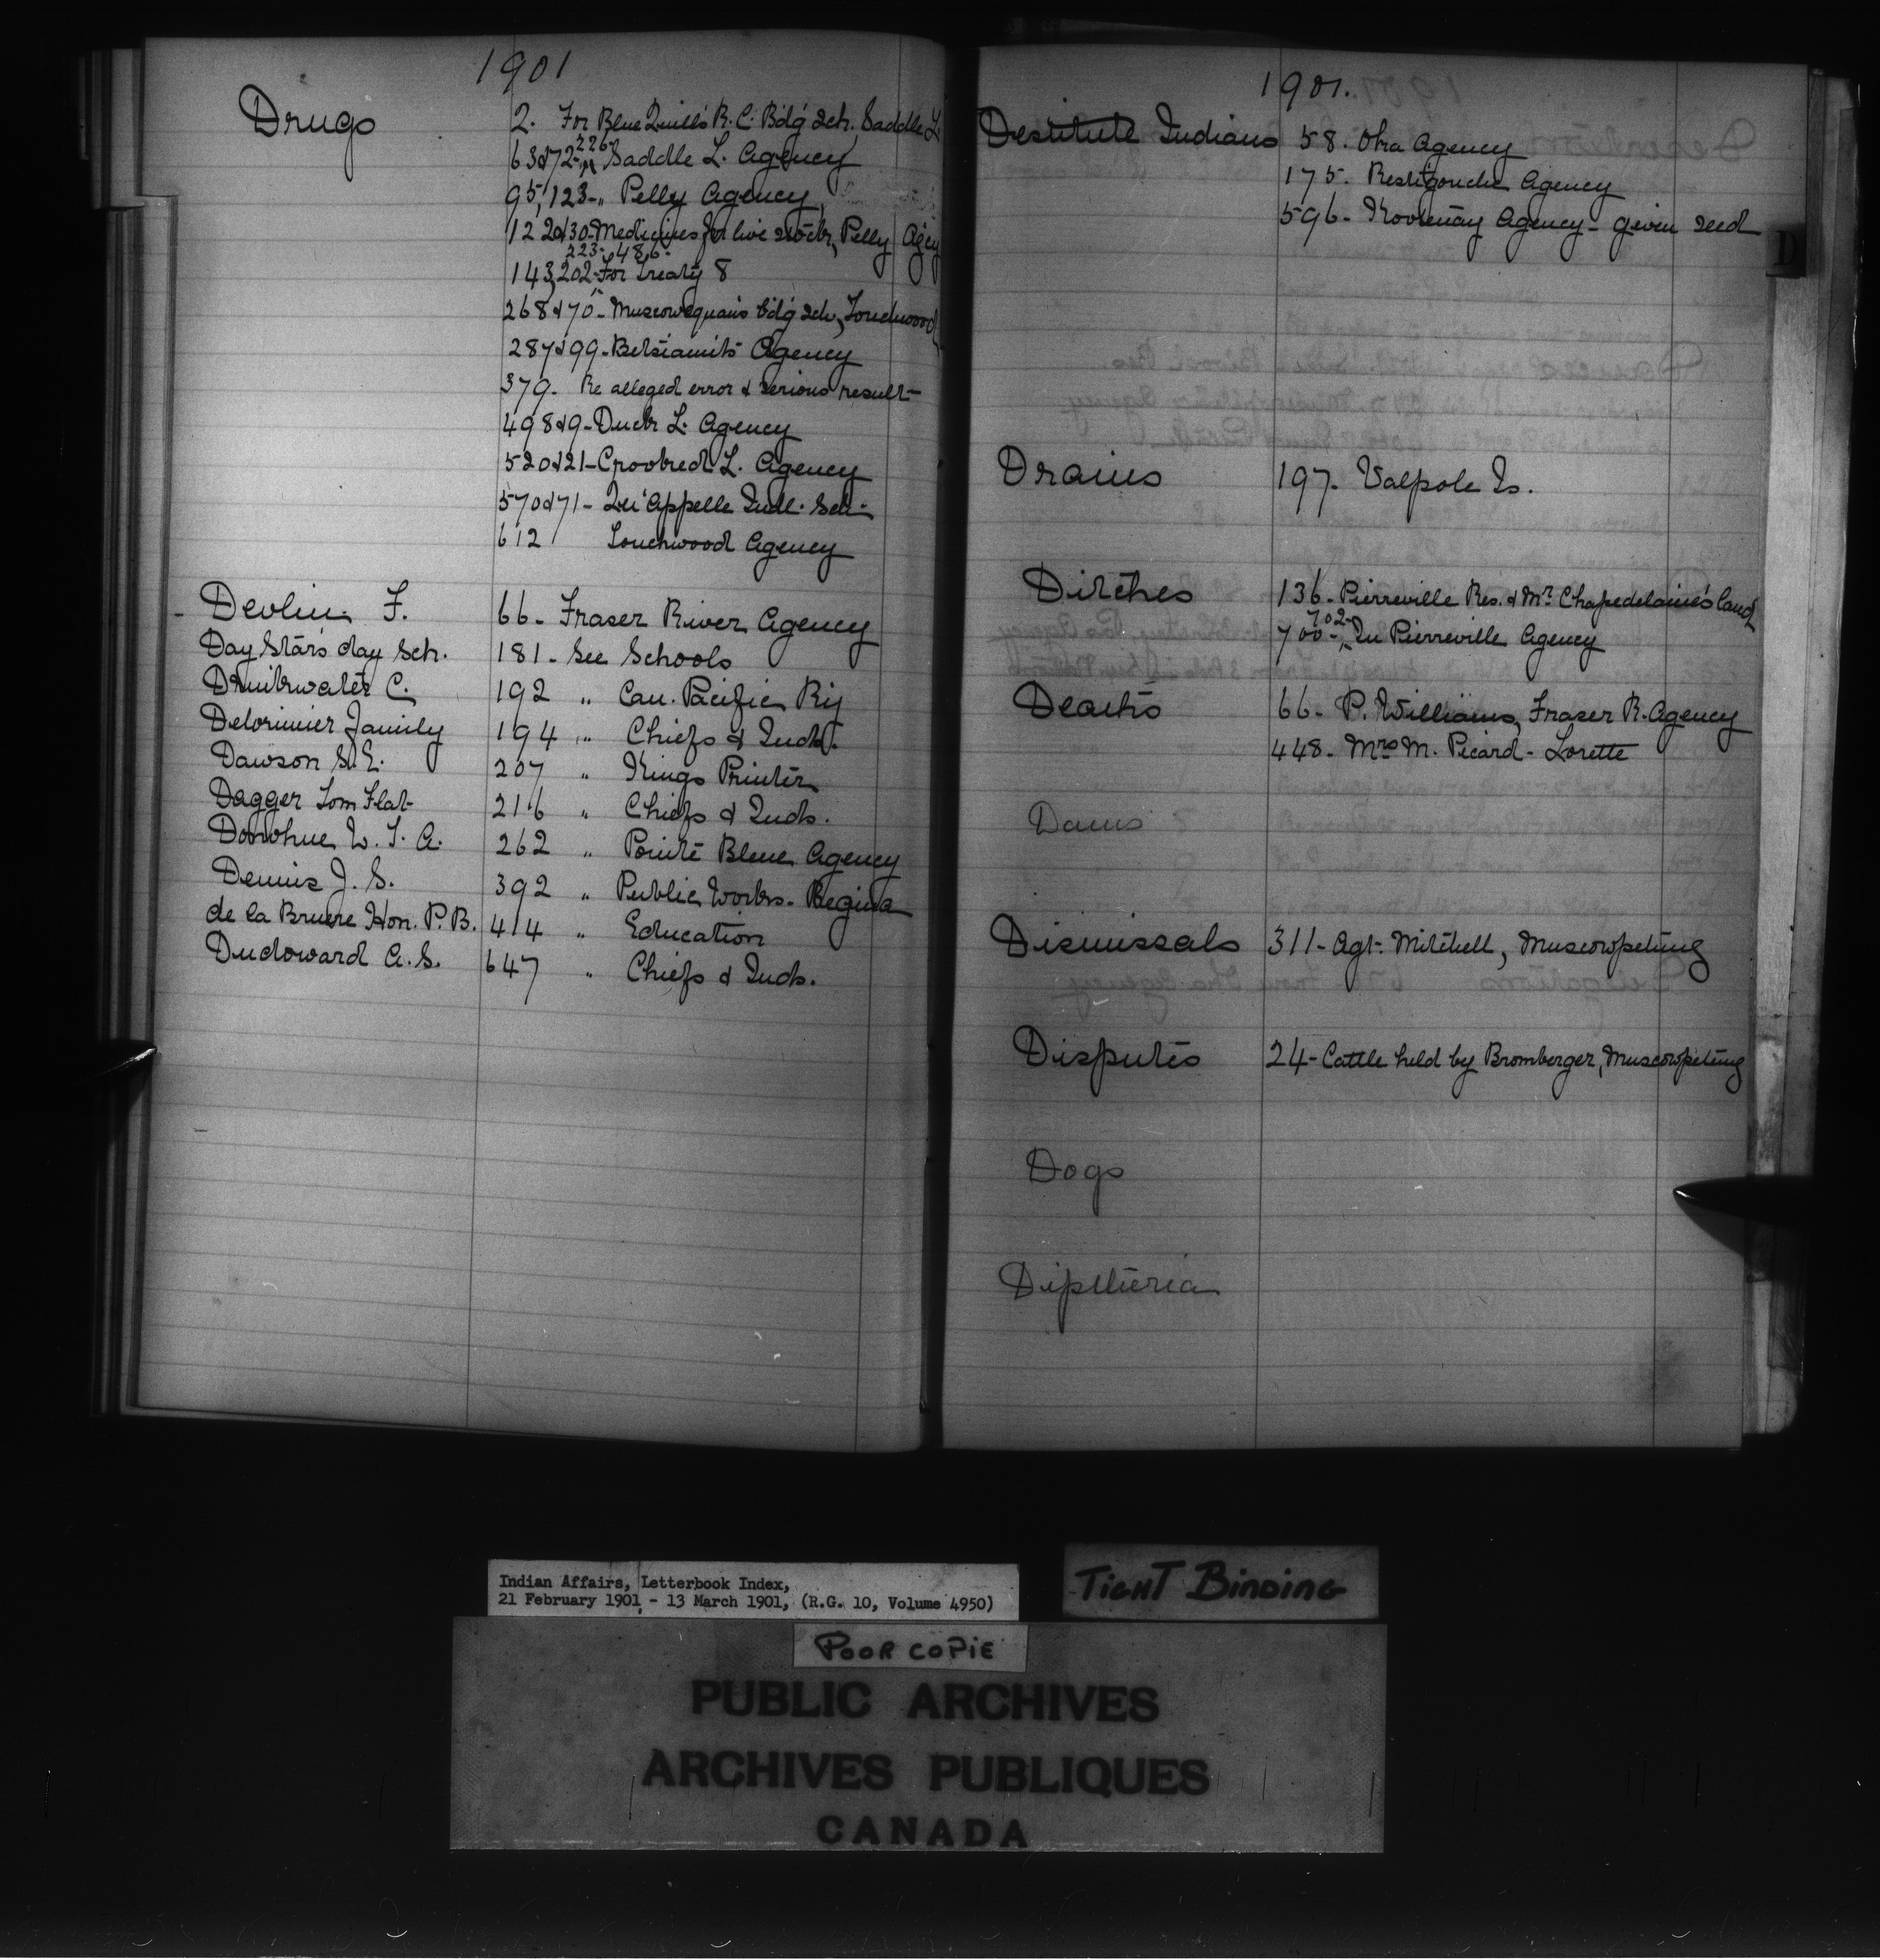 1901
Drugs 2. For Blue Quill's R.C. Bdg Sch. Saddle L.
226-
63&72- " Saddle L. Agency
95,123- " Pelly Agency
122&30- Medicines for live stock, Pelly Agcy
223-, 486-
143,202- For Treaty 8
268&70- Muscowequain's bdg sch, Touchwood
287&99- Betsiamits Agency
379. Re alleged error & serious result
498&9- Duck L. Agency
520&21- Crooked L. Agency
570&71- Qu'Appelle Indl. Sch.
612 Touchwood Agency
Devlin F. 66- Fraser River Agency
Day Star's day Sch. 181- See Schools
Drinkwater C. 192 " Can. Pacific Ry
Delorimier Family 194 " Chiefs & Inds.
Dawson S.E. 207 " Kings Printer
Dagger Tom Flat 216 " Chiefs & Inds.
Donohue W. T. A. 262 " Pointe Bleue Agency
Dennis J. S. 392 " Public Works- Regina
de la Bruere Hon. P.B. 414 " Education
Dudoward A.S. 647 " Chiefs & Inds.
1901.
Destitute Indians 58. Oka Agency
175. Restigouche Agency
596- Kootenay Agency- given seed
D
Drains 197. Walpole Is.
Ditches 136- Pierreville Res. & Mr. Chapedelaine's land
702-
700-, In Pierreville Agency
Deaths 66- P. Williams, Fraser R. Agency
448- Mrs M. Picard- Lorette
Dams
Dismissals 311- Agt. Mitchell, Muscowpetung
Disputes 24- Cattle held by Bromberger, Muscowpetung
Dogs
Diptheria
Indian Affairs, Letterbook Index,
21 February 1901 - 13 March 1901, (R.G. 10, Volume 4950)
TIGHT BINDING
POOR COPIE
PUBLIC ARCHIVES
ARCHIVES PUBLIQUES
CANADA